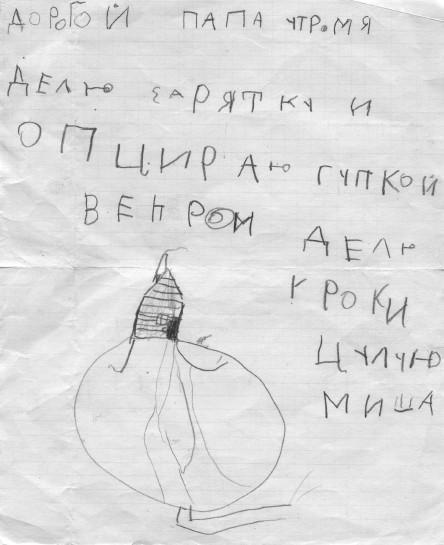 ДОРОГОЙ ПАПА УТРОМЯ
ДЕЛЮ ЗАРЯТКУ И
ОПЦИРАЮ ГУПКОЙ
ВЕНРОМ ДЕЛЮ
УРОКИ
ЦУЛУЮ
МИША